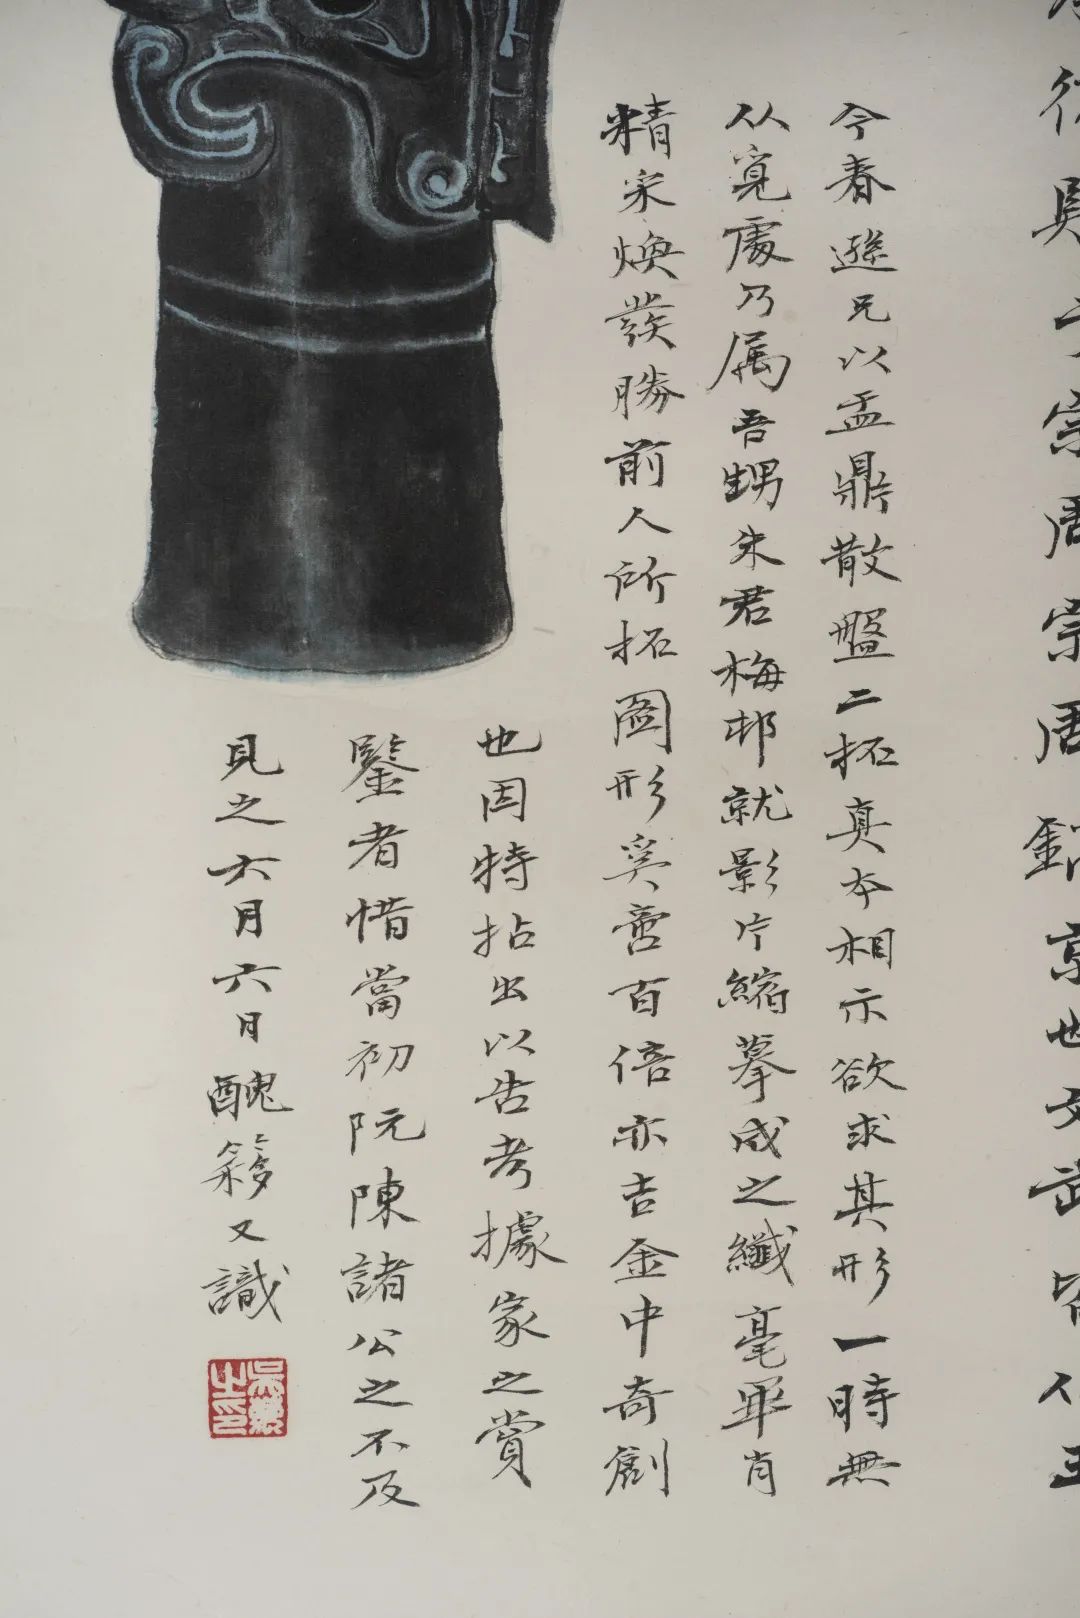 宗周宗周
京也文武皆
今春遜兄以盂鼎散盤二拓真本相示欲求其形一時無
从覓處乃属吾甥朱君梅邨就影片縮摹成之纖毫畢肖
精采煥發勝前人所拓圖形奚啻百倍亦吉金中奇創
也因特拈出以告考據家之賞
鑒者惜當初阮陳諸公之不及
見之六月六日醜簃又識
吳萬之印